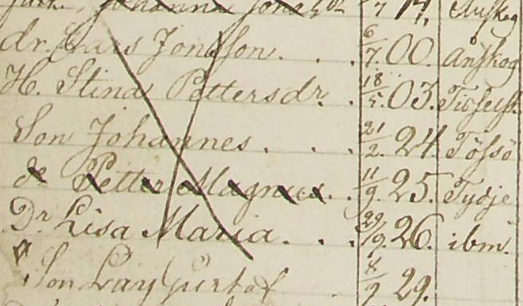 Johanna Jons dr 7 14. Ånskog
dr. Lars Jonsson. . . 6/7 00. Ånskog
H. Stina Pettersdr. 18/5 03.
Son Johannes. . . . 21/2. 24. Tössö
do Petter Magnus. . 11/9. 25. Tydje
Dr Lisa Maria. . . 29/9 26. ibm.
Son Lars Gustaf 8/9 29.